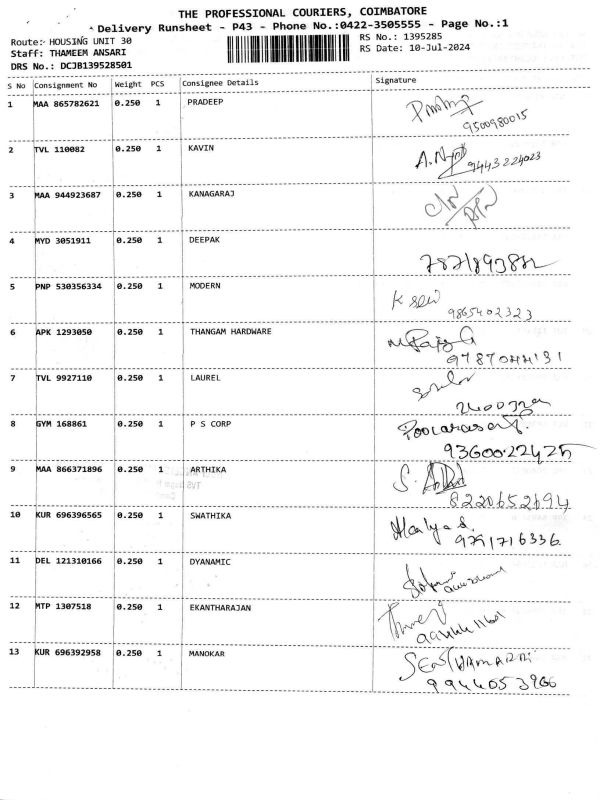 THE PROFESSIONAL COURIERS, COIMBATORE
Delivery Runsheet - P43 - Phone No.:0422-3505555 - Page No.:1
Route: HOUSING UNIT 30
RS No.: 1395285
Staff: THAMEEM ANSARI
RS Date: 10-Jul-2024
DRS No.: DCJB139528501
S No Consignment No Weight PCS Consignee Details Signature
1 MAA 865782621 0.250 1 PRADEEP
9500980015
2 TVL 110082 0.250 1 KAVIN
9443224023
3 MAA 944923687 0.250 1 KANAGARAJ
4 MYD 3051911 0.250 1 DEEPAK
5 PNP 530356334 0.250 1 MODERN
9865402323
6 APK 1293050 0.250 1 THANGAM HARDWARE
9787044131
7 TVL 9927110 0.250 1 LAUREL
8 GYM 168861 0.250 1 P S CORP
9360022425
9 MAA 866371896 0.250 1 ARTHIKA
8220652694
10 KUR 696396565 0.250 1 SWATHIKA
9791716336
11 DEL 121310166 0.250 1 DYANAMIC
12 MTP 1307518 0.250 1 EKANTHARAJAN
13 KUR 696392958 0.250 1 MANOKAR
9944053966